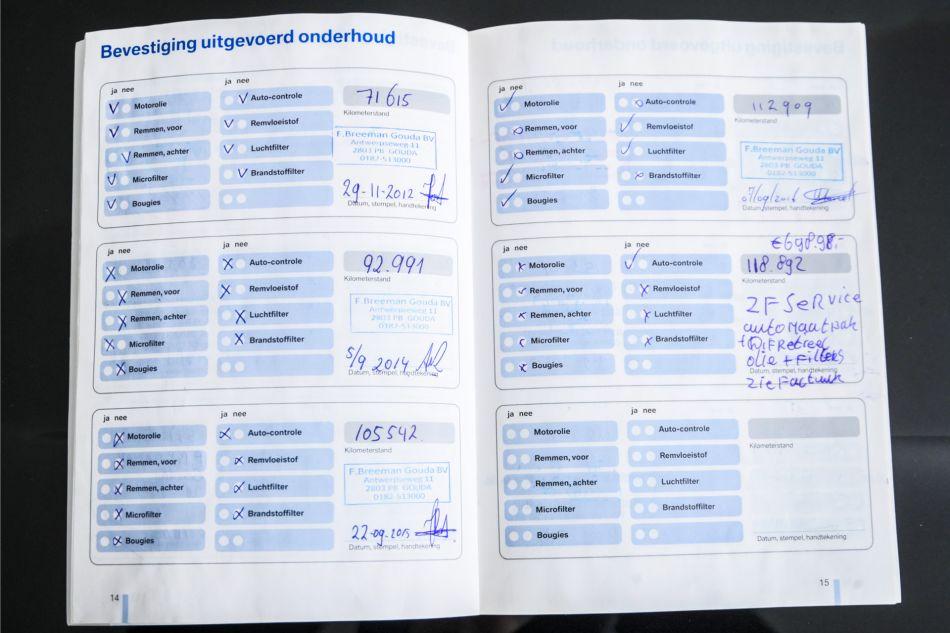 Bevestiging uitgevoerd onderhoud
ja nee
ja nee
Motorolie
Auto-controle
71615
Kilometerstand
Remmen, voor
Remvloeistof
Remmen, achter
Luchtfilter
F.Breeman Gouda BV
Antwerpseweg 11
2803 PB GOUDA
0182-513000
Microfilter
Brandstoffilter
Bougies
29-11-2012
Datum, stempel, handtekening
ja nee
ja nee
Motorolie
Auto-controle
92.991
Kilometerstand
Remmen, voor
Remvloeistof
Remmen, achter
Luchtfilter
F.Breeman Gouda BV
Antwerpseweg 11
2803 PB GOUDA
0182-513000
Microfilter
Brandstoffilter
Bougies
5/9 2014
Datum, stempel, handtekening
ja nee
ja nee
Motorolie
Auto-controle
105542
Kilometerstand
Remmen, voor
Remvloeistof
Remmen, achter
Luchtfilter
F.Breeman Gouda BV
Antwerpseweg 11
2803 PB GOUDA
0182-513000
Microfilter
Brandstoffilter
Bougies
22-09-2015
Datum, stempel, handtekening
14
ja nee
ja nee
Motorolie
Auto-controle
112909
Kilometerstand
Remmen, voor
Remvloeistof
Remmen, achter
Luchtfilter
F.Breeman Gouda BV
Antwerpseweg 11
2803 PB GOUDA
0182-513000
Microfilter
Brandstoffilter
Bougies
Datum, stempel, handtekening
ja nee
ja nee
€698.98.-
Motorolie
Auto-controle
118.892
Kilometerstand
Remmen, voor
Remvloeistof
Remmen, achter
Luchtfilter
Microfilter
Brandstoffilter
Bougies
ZF SeRvice
automaatbak
olie + Filters
Datum, stempel, handtekening
zie Factuur
ja nee
ja nee
Motorolie
Auto-controle
Kilometerstand
Remmen, voor
Remvloeistof
Remmen, achter
Luchtfilter
Microfilter
Brandstoffilter
Bougies
Datum, stempel, handtekening
15